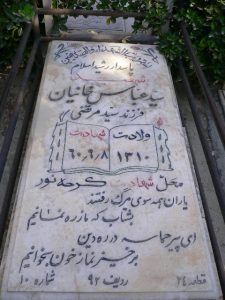 پاسدار رشید اسلام
شهید
سید عباس خانیان
فرزند سید مرتضی
ولادت
شهادت
۱۳۱۰
۶۰,۶,۸
محل شهادت کرخه نور
یاران همه سوی مرگ رفتند
بشتاب که ما ز ره نمانیم
ای پیر حماسه در ره دین
برخیز نماز خون بخوانیم
قطعه ۲۴
ردیف ۹۲
شماره ۱۰